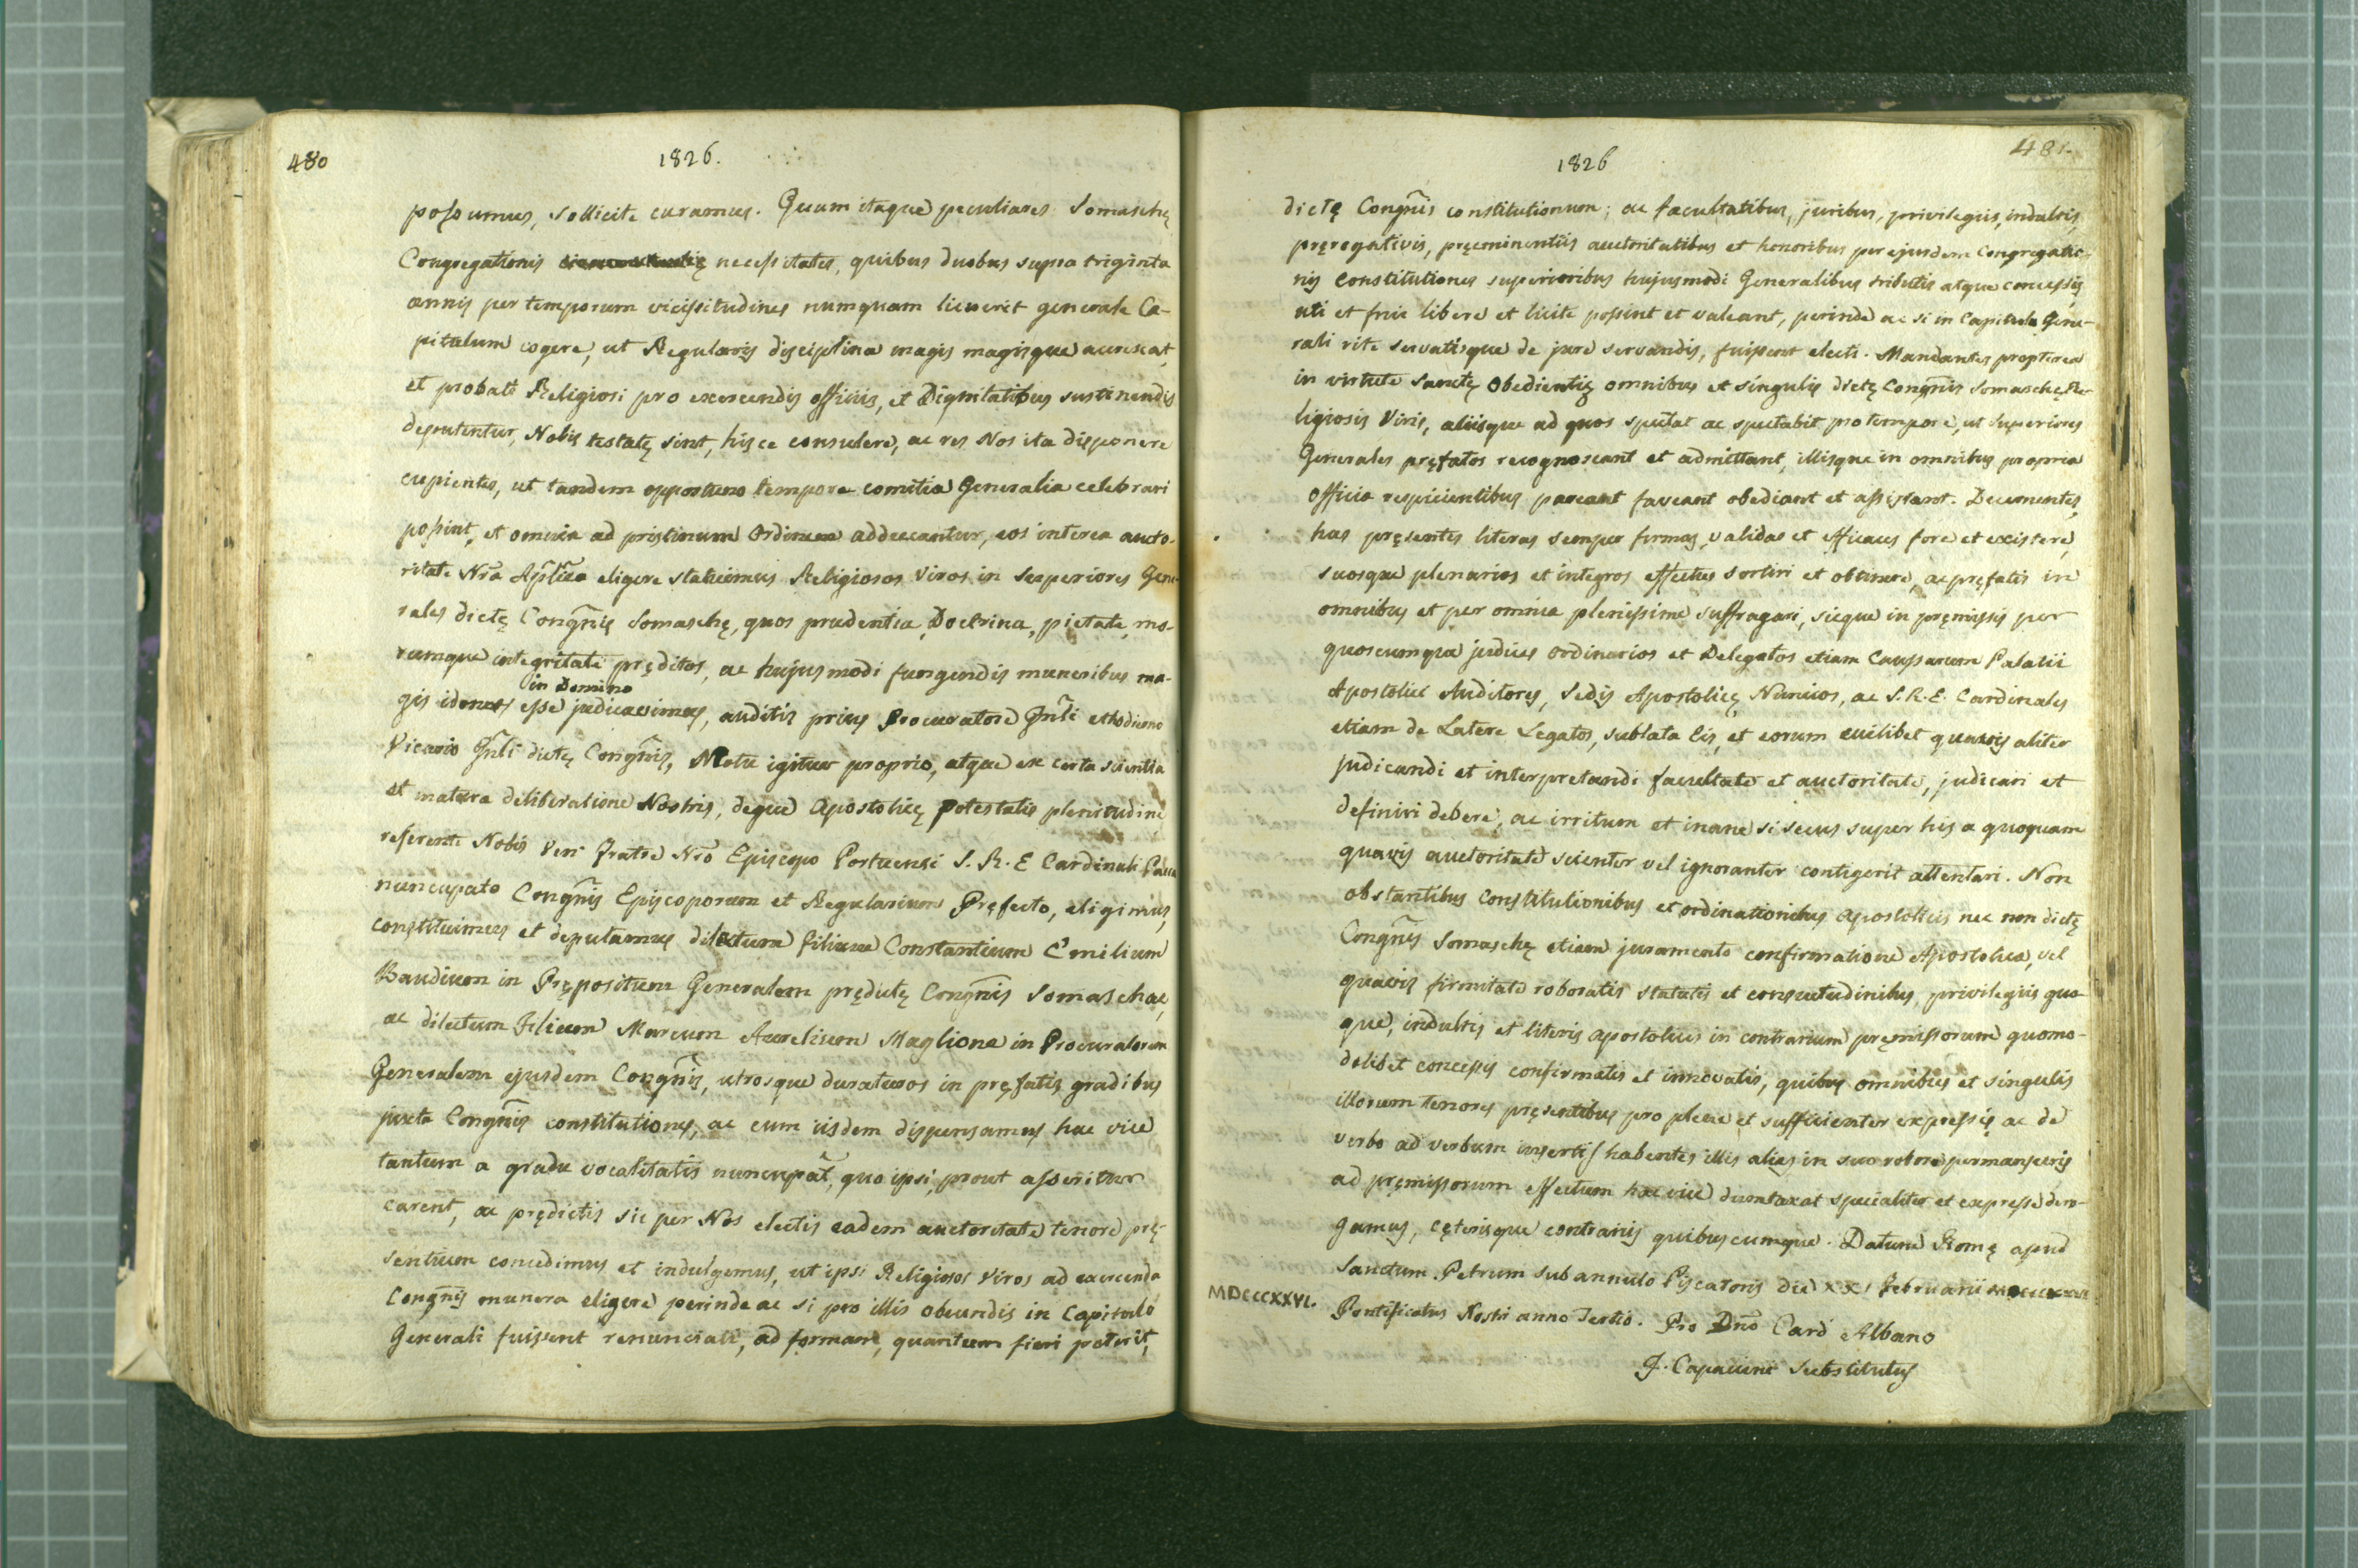 480
1826.
possumus, sollicite curamus. Quum itaque peculiares Somaschę
Congregationis necessitates, quibus duobus supra triginta
annis per temporum vicissitudines numquam licuerit generale Ca-
pitulum cogere, ut Regularis disciplina magis magisque accrescat,
et probati Religiosi pro exercendis officiis, et Dignitatibus sustinendis
deputentur, Nobis testatę sint, hisce consulere, ac res Nos ita disponere
cupientes, ut tandem opportuno tempore comitia Generalia celebrari
possint, et omnia ad pristinum Ordinem adducantur, eos interea aucto-
ritate Nrã Aplica eligere statuimus Religiosos Viros in Superiores Gene-
rales dictę Congñis Somaschę, quos prudentia, Doctrina, pietate, mo-
rumque integritate pręditos, ac hujusmodi fungendis muneribus ma-
gis idoneos in Domino esse judicavimus, auditis prius Procuratore Gnli et hodierno
Vicario Gnli dictę Congñis, Motu igitur proprio, atque ex certa scientia
et matura deliberatione Nostris, deque Apostolicę potestatis plenitudine
referente Nobis Ven Fratre Nrõ Episcopo Portuensi S. R. E Cardinali Pacca
nuncupato Congñis Episcoporum et Regularium Pręfecto, eligimus,
constituimus et deputamus dilectum filium Constantium Emilium
Baudium in Prępositum Generalem prędictę Congñis Somaschae,
ac dilectum Filium Marcum Aurelium Maglione in Procuratorem
Generalem ejusdem Congñis, utrosque duraturos in pręfatis gradibus
juxta Congñis constitutiones, ac cum iisdem dispensamus hac vice
tantum a gradu vocalitatis nuncupat̃, quo ipsi, prout asseritur
carent, ac prędictis sic per Nos electis eadem auctoritate tenore prę-
sentium concedimus et indulgemus, ut ipsi Religiosos Viros ad exercenda
Congñis munera eligere perinde ac si pro illis obeundis in Capitulo
Generali fuissent renunciati, ad formam, quantum fieri poterit,
481.
1826
dictę Congñis constitutionum; ac facultatibus, juribus, privilegiis, indultis,
pręrogativis, pręeminentiis auctoritatibus et honoribus per ejusdem Congregatio-
nis Constitutiones superioribus hujusmodi Generalibus tributis atque concessis
uti et frui libere et licite possint et valeant, perinde ac si in Capitulo Gene-
rali rite servatisque de jure servandis, fuissent electi. Mandantes propterea
in virtute Sanctę Obedientię omnibus et singulis dictę Congñis Somaschę Re-
ligiosis Viris, aliisque ad quos spectat ac spectabit pro tempore, ut Superiores
Generales pręfatos recognoscant et admittant, illisque in omnibus propria
officia respicientibus pareant faveant obediant et assistant. Decernentes,
has pręsentes literas semper firmas, validas et efficaces fore et existere,
suosque plenarios et integros effectus sortiri et obtinere, ac pręfatis in
omnibus et per omnia plenissime suffragari, sicque in pręmissis per
quoscumque judices ordinarios et Delegatos etiam Causarum Palatii
Apostolici Auditores, Sedis Apostolicę Nuncios, ac S. R. E. Cardinales
etiam de Latere Legatos, sublata eis, et eorum cuilibet quavis aliter
judicandi et interpretandi facultate et auctoritate, judicari et
definiri debere; ac irritum et inane si secus super his a quoquam
quavis auctoritate scienter vel ignoranter contigerit attentari. Non
obstantibus Constitutionibus et ordinationibus Apostolicis nec non dictę
Congñis Somaschę etiam juramento confirmatione Apostolica, vel
quavis firmitate roboratis statutis et consuetudinibus, privilegiis quo-
que, indultis et literis apostolicis in contrarium pręmissorum quomo-
dolibet concessis confirmatis et innovatis, quibus omnibus et singulis
illorum tenores pręsentibus pro plene et sufficienter expressis ac de
verbo ad verbum insertis habentes illis alias in suo robore permansuris
ad pręmissorum effectum hac vice dumtaxat specialiter et expresse dero-
gamus, cęterisque contrariis quibuscumque. Datum Romę apud
Sanctum Petrum sub annulo Piscatoris die XXI Februarii
MDCCCXXVI. Pontificatus Nostri anno Tertio. Pro Dnõ Card Albano
J. Capaccini Substitutus